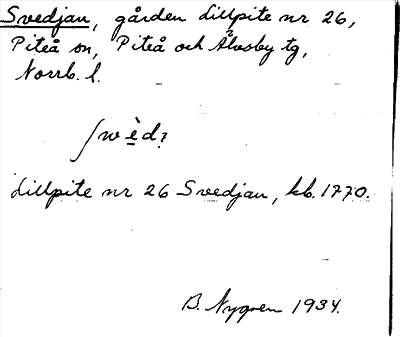 Svedjan, gården Lillpite nr 26,
Piteå sn, Piteå och Älvsby tg,
Norrb. l.
Lillpite nr 26 Svedjan, kb. 1770.
B. Nygren 1934.